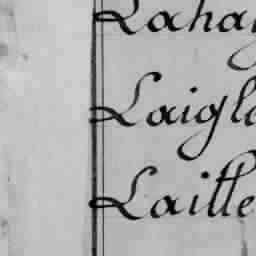 Lahay
Laigle
Laitte